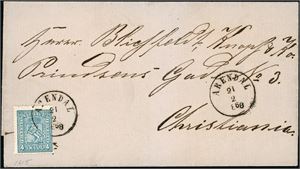 Herrer Blichfeldt, Knopf & Co.
Prindsens Gade No 3.
Christiania.
ARENDAL
21
2
1868
ARENDAL
21
2
1868